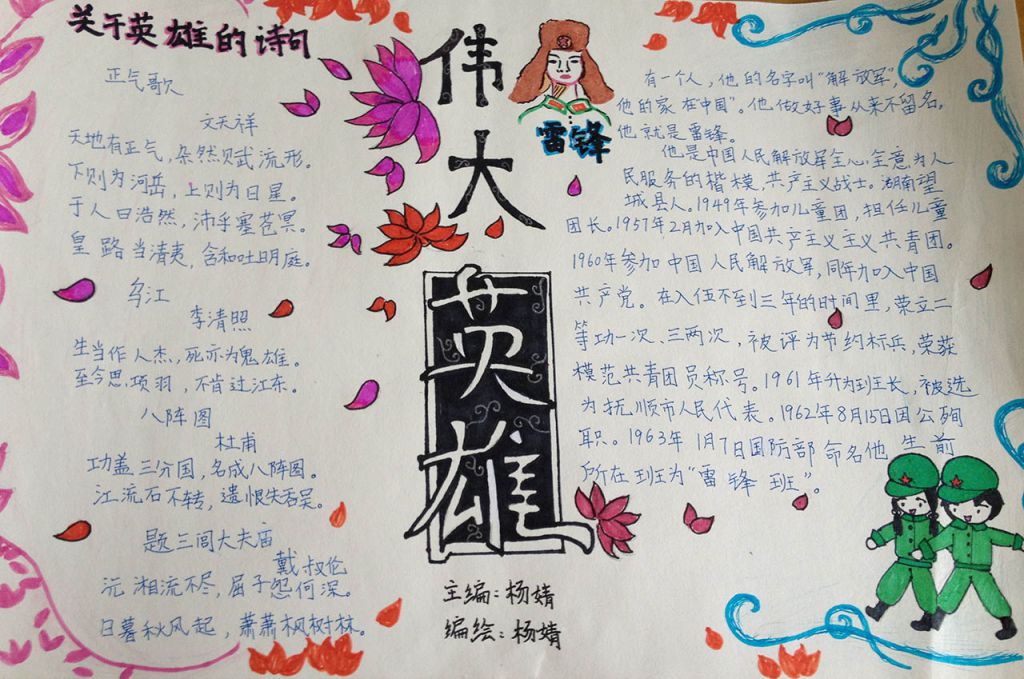 关于英雄的诗句
正气歌
文天祥
天地有正气，杂然赋流形。
下则为河岳，上则为日星。
于人曰浩然，沛乎塞苍冥。
皇路当清夷，含和吐明庭。
乌江
李清照
生当作人杰，死亦为鬼雄。
至今思项羽，不肯过江东。
八阵图
杜甫
功盖三分国，名成八阵图。
江流石不转，遗恨失吞吴。
题三闾大夫庙
戴叔伦
沅湘流不尽，屈子怨何深。
日暮秋风起，萧萧枫树林。
伟大
英雄
主编：杨婧
编绘：杨婧
雷锋
有一个人，他的名字叫“解放军”，
他的家在中国”。他做好事从来不留名。
他就是雷锋。
他是中国人民解放军全心全意为人
民服务的楷模，共产主义战士。湖南望
城县人。1949年参加儿童团，担任儿童
团长。1957年2月加入中国共产主义主义共青团。
1960年参加中国人民解放军，同年加入中国
共产党。在入伍不到三年的时间里，荣立二
等功一次、三两次，被评为节约标兵，荣获
模范共青团员称号。1961年升为班长，被选
为抚顺市人民代表。1962年8月15日因公殉
职。1963年1月7日国防部命名他生前
所在班为“雷锋班”。